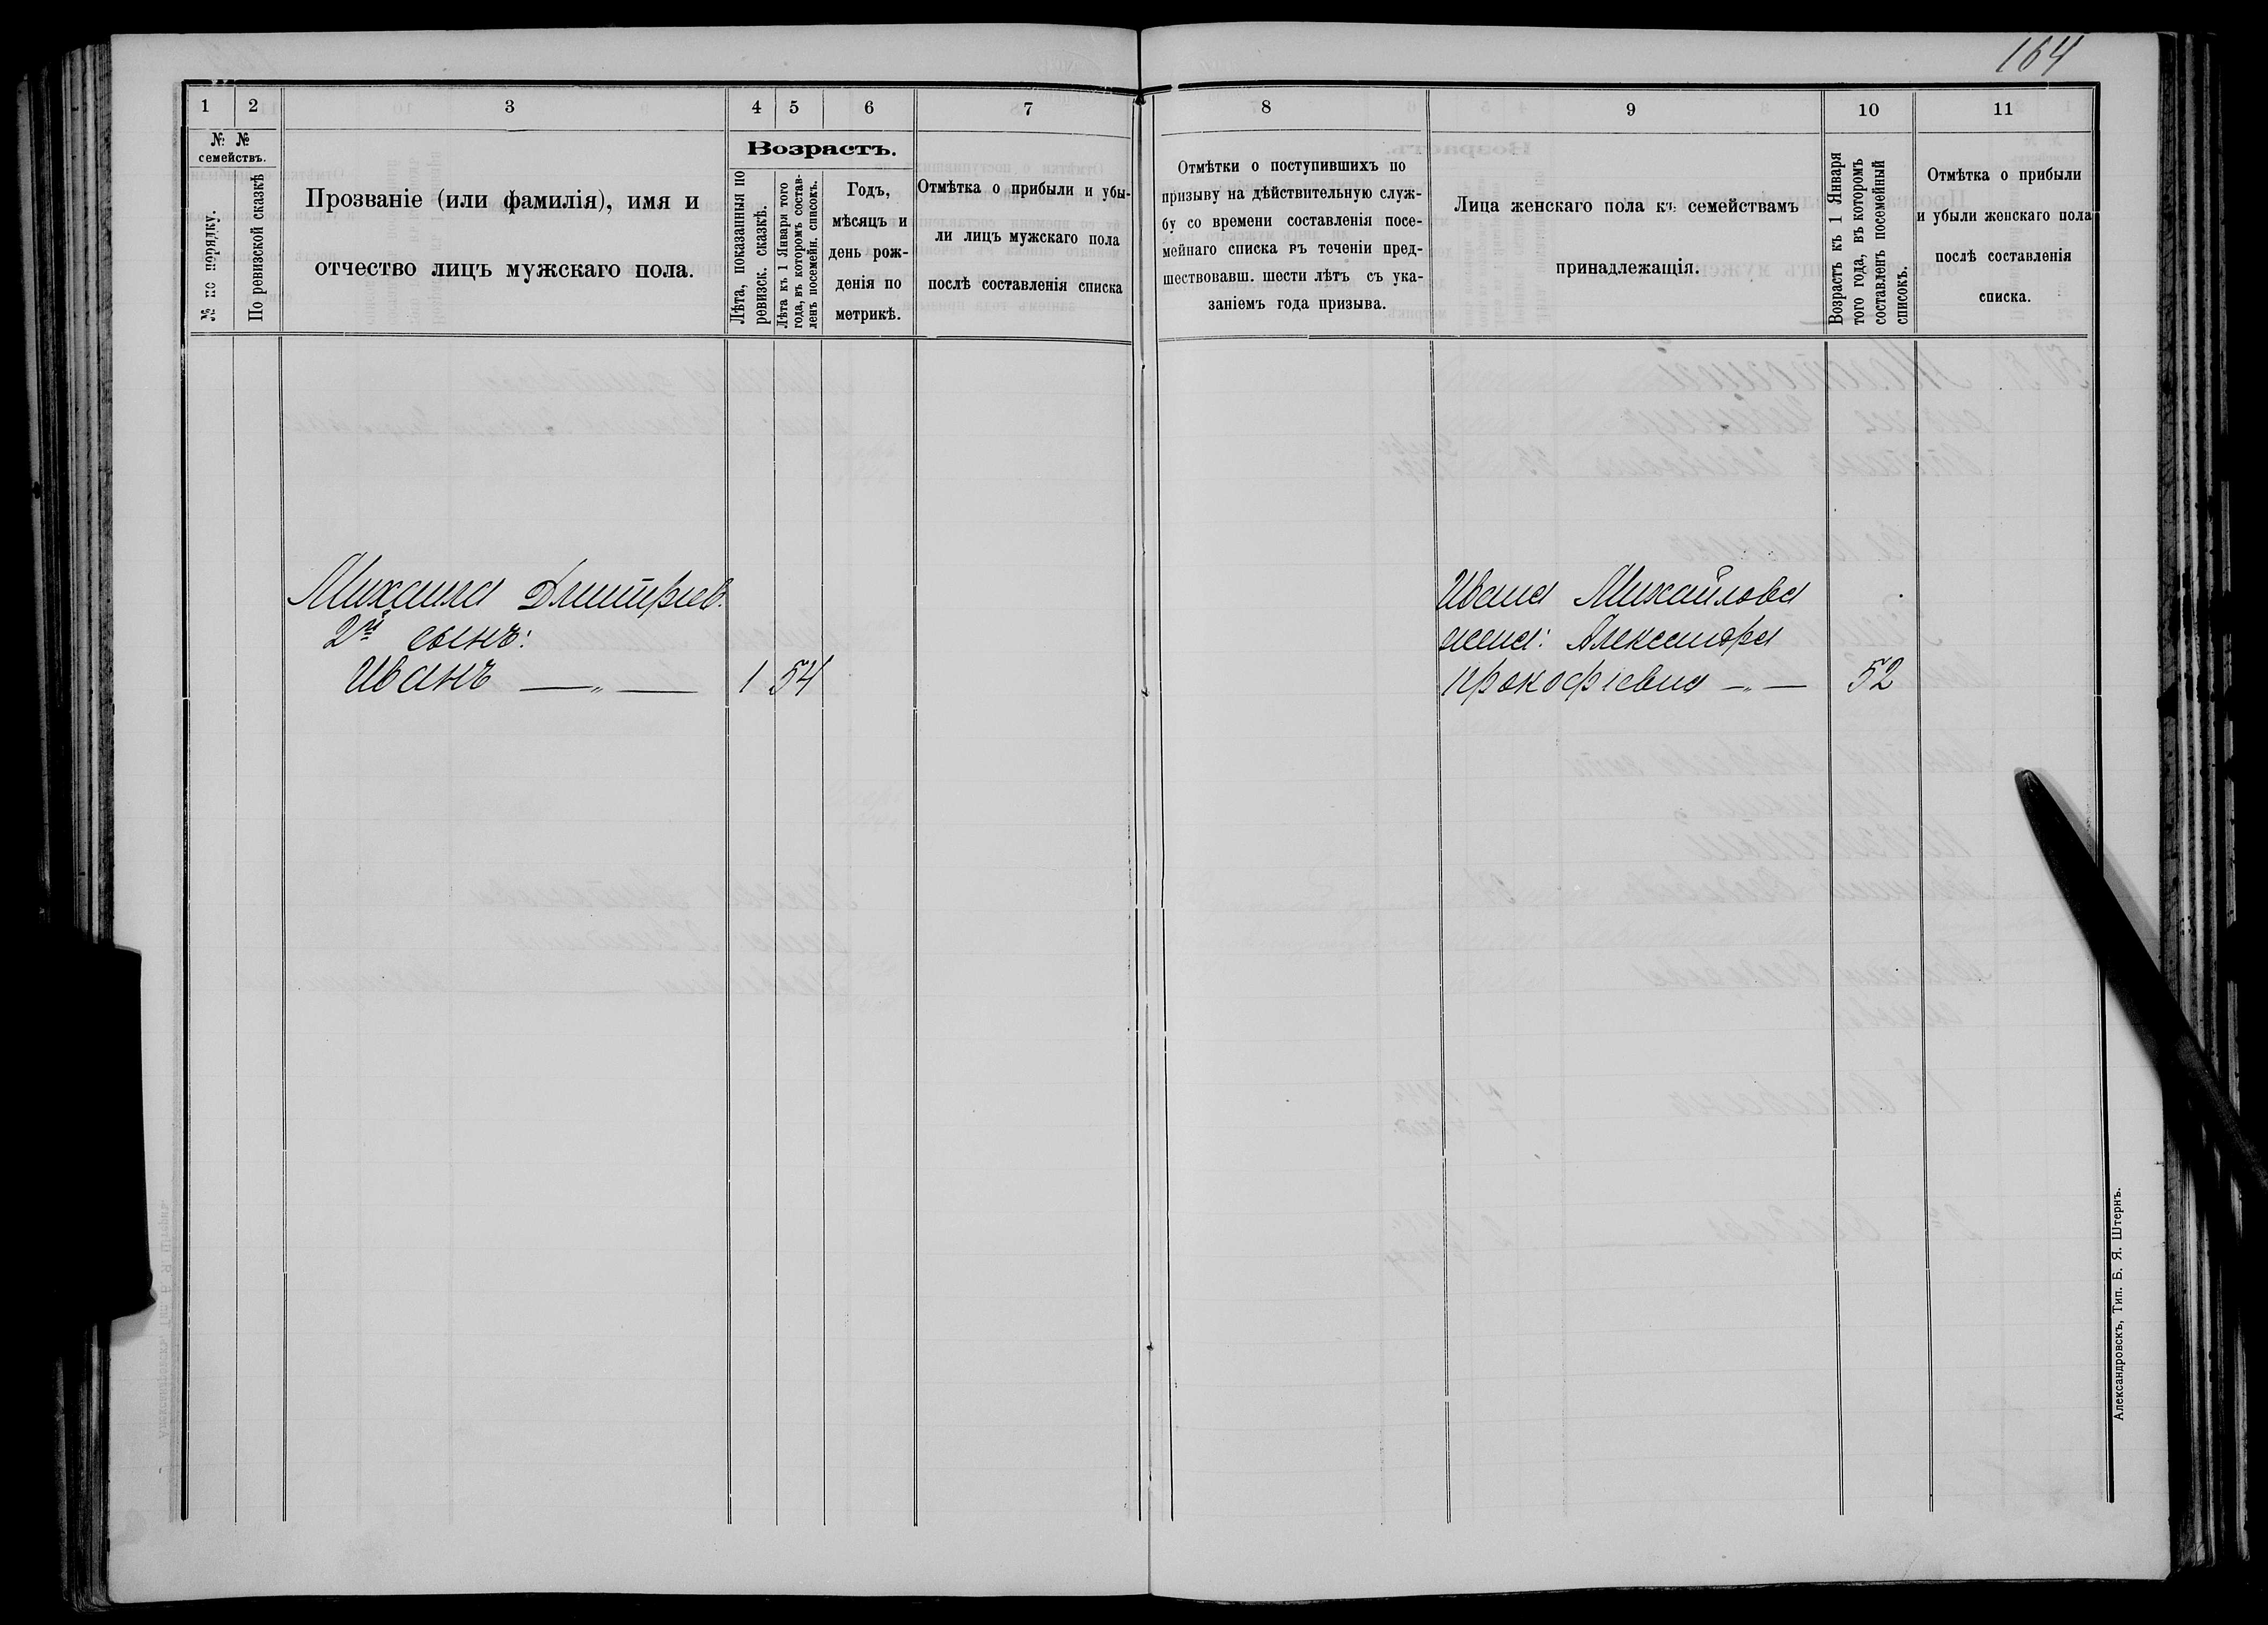 164
1
2
3
4
5
6
7
8
9
10
11
№ №
семействъ.
№ по порядку.
По ревизской сказкѣ
Прозваніе (или фамилія), имя и
отчество лицъ мужскаго пола.
Возрастъ.
Лѣта, показанныя по
ревизск. сказкѣ.
Лѣта къ 1 Января того
года, въ которомъ состав-
ленъ посемейн. списокъ.
Годъ,
мѣсяцъ и
день рож-
денія по
метрикѣ.
Отмѣтка о прибыли и убы-
ли лицъ мужскаго пола
послѣ составленія списка
Отмѣтки о поступившихъ по
призыву на дѣйствительную служ-
бу со времени составленія посе-
мейнаго списка въ теченіи пред-
шествовавш. шести лѣтъ съ ука-
заніемъ года призыва.
Лица женскаго пола къ семействамъ
принадлежащія.
Возрастъ къ 1 Января
того года, въ которомъ
составленъ посемейный
списокъ.
Отмѣтка о прибыли
и убыли женскаго пола
послѣ составленія
списка.
Михаила Дмитріев.
2й сынъ:
Иванъ — „ — 1 54
Ивана Михайлова
жена: Александра
Прокофіевна — „ — 52
Александровскъ, Тип. Б. Я. Штернъ.